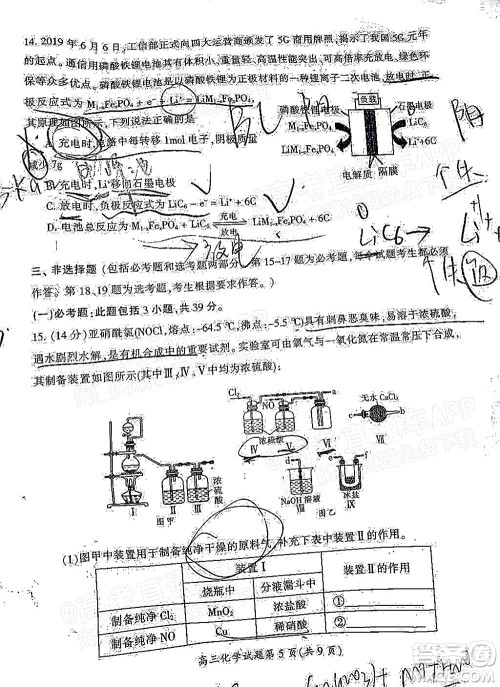 14. 2019 年 6 月 6 日,工信部正式向四大运营商颁发了 5G 商用牌照,揭示了我国 5G 元年
的起点。通信用磷酸铁锂电池其有体积小、重量轻、高温性能突出、可高倍率充放电、绿色环
保等众多优点。磷酸铁锂电池是以磷酸铁锂为正极材料的一种锂离子二次电池,放电时,正
极反应式为 M₁₋ₓFeₓPO₄ + e⁻ + Li⁺ = LiM₁₋ₓFeₓPO₄
其原理如图所示,下列说法正确的是
A. 充电时,电路中每转移 1mol 电子,阴极质量
减小 7g
B. 充电时,Li⁺移向石墨电极
C. 放电时,负极反应式为 LiC₆ - e⁻ = Li⁺ + 6C
D. 电池总反应为 M₁₋ₓFeₓPO₄ + LiC₆ 充电 放电 LiM₁₋ₓFeₓPO₄ + 6C
负载
磷酸铁锂电极 石墨电极
M₁₋ₓFeₓPO₄ LiC₆
LiM₁₋ₓFeₓPO₄ 6C
电解质 隔膜
LiC₆ → Li⁺
放电
三、非选择题 (包括必考题和选考题两部分。第 15~17 题为必考题,每个试题考生都必须
作答。第 18、19 题为选考题,考生根据要求作答。)
(一)必考题:此题包括 3 小题,共 39 分。
15. (14 分)亚硝酰氯(NOCl,熔点:-64.5 ℃,沸点:-5.5 ℃)具有刺鼻恶臭味,易溶于浓硫酸,
遇水剧烈水解,是有机合成中的重要试剂。实验室可由氯气与一氧化氮在常温常压下合成,
其制备装置如图所示(其中Ⅲ、Ⅳ、Ⅴ中均为浓硫酸):
Cl₂ a
NO
浓硫酸
Ⅳ Ⅴ
无水 CaCl₂
Ⅵ
浓硫酸
Ⅰ Ⅱ Ⅲ
图甲
NaOH 溶液
冰盐
图乙
(1)图甲中装置用于制备纯净干燥的原料气,补充下表中装置Ⅱ的作用。
装置Ⅰ 装置Ⅱ的作用
烧瓶中 分液漏斗中
制备纯净 Cl₂ MnO₂ 浓盐酸 ①
制备纯净 NO Cu 稀硝酸 ②
高三化学试题第 5 页(共 9 页)